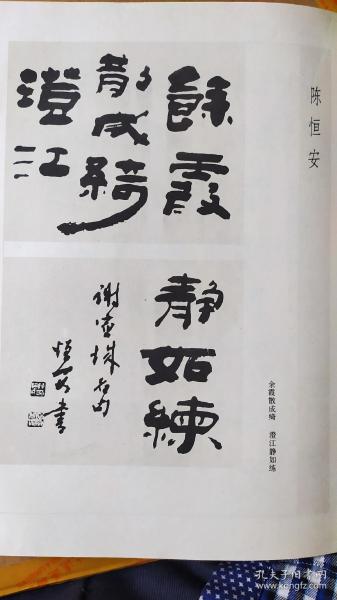 陈恒安
餘霞
散成綺
澄江
静如練
谢宣城句
恒安书
余霞散成绮　澄江静如练
孔夫子旧书网
www.kongfz.com